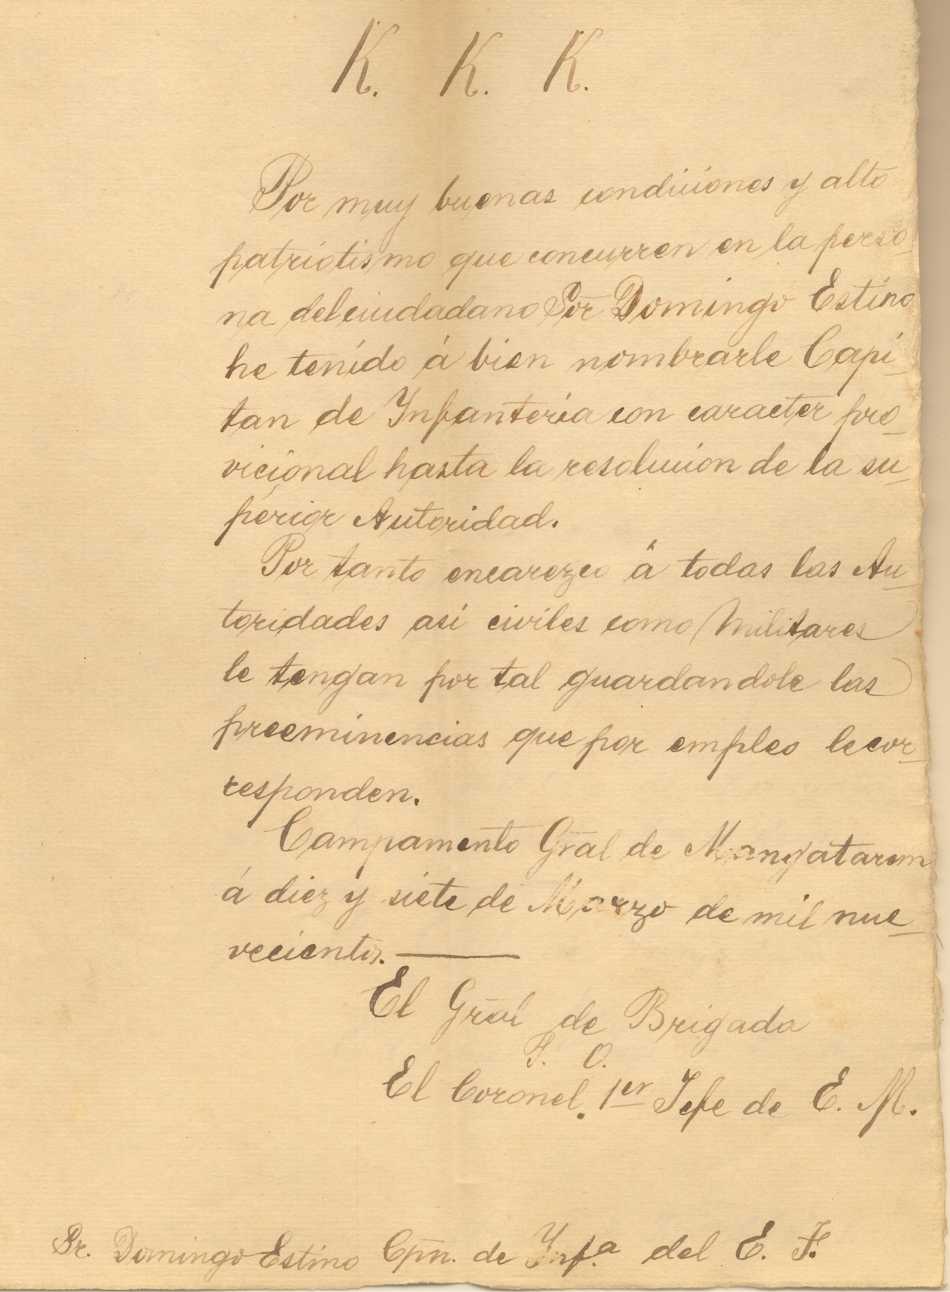 K. K. K.
Por muy buenas condiciones y alto
patriotismo que concurren en la perso-
na del ciudadano Sor Domingo Estino
he tenido á bien nombrarle Capi-
tan de Infanteria con caracter pro-
vicional hasta la resolucion de la su-
perior Autoridad.
Por tanto encarezco á todas las Au-
toridades asi civiles como Militares
le tengan por tal guardandole las
preeminencias que por empleo le cor-
responden.
Campamento Gral de Mangatarem
á diez y siete de Marzo de mil nue-
vecientos.
El Gral de Brigada
P. O.
El Coronel. 1er Jefe de E. M.
Sr. Domingo Estino Cpn. de Ynfa. del E. F.